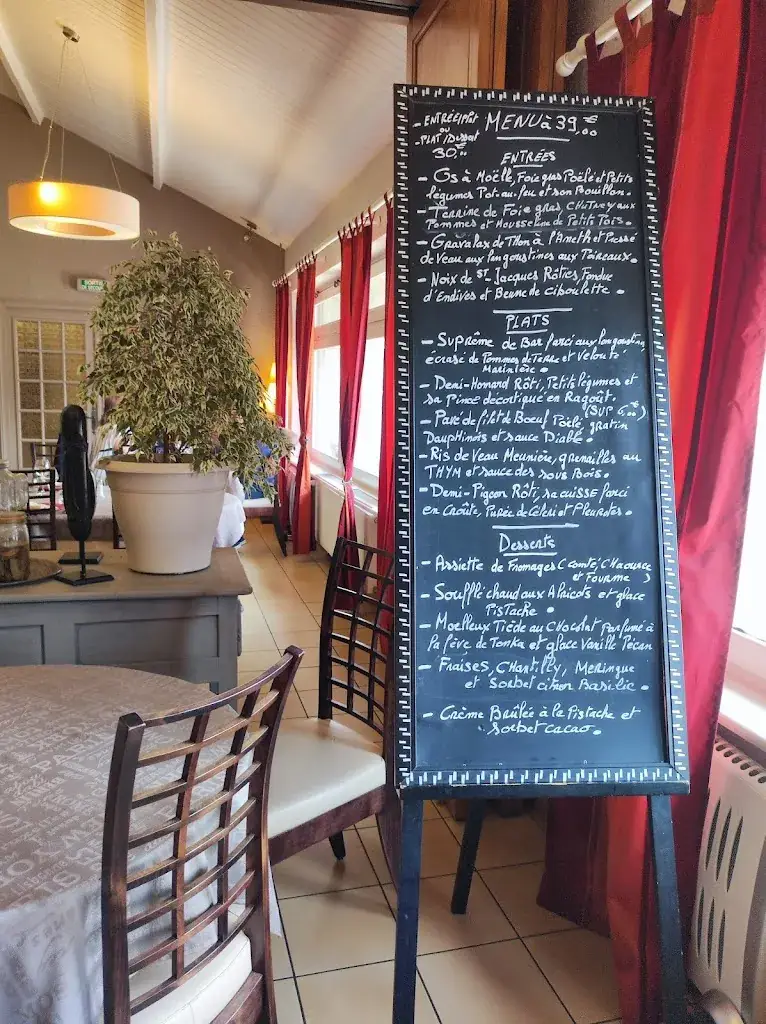 SORTIE
DE SECOURS
- ENTRÉE/PLAT
OU
- PLAT/DESSERT
30,00
MENU à 39,00 €
ENTRÉES
- Os à Moëlle, Foie gras Poêlé et Petits
légumes Pot au feu et son Bouillon.
- Terrine de Foie gras, CHUTNEY aux
Pommes et Mousseline de Petits Pois.
- Gravalax de Thon à l'Aneth et Pressé
de Veau aux langoustines aux Poireaux.
- Noix de St Jacques Rôties, Fondue
d'Endives et Beurre de ciboulette.
PLATS
- Suprême de Bar farci aux langoustines,
écrasé de Pommes de Terre et Velouté
Marinière.
- Demi-Homard Rôti, Petits légumes et
sa Pince décortiquée en Ragoût.
(SUP 6,00 €)
- Pavé de filet de Boeuf Poêlé, gratin
Dauphinois et sauce Diable.
- Ris de Veau Meunière, grenailles au
THYM et sauce des sous Bois.
- Demi-Pigeon Rôti, sa cuisse farci
en croûte, Purée de Céleri et Pleurotes.
Desserts
- Assiette de Fromages (Comté, Chaource
et Fourme)
- Soufflé chaud aux Abricots et glace
Pistache.
- Moelleux Tiède au Chocolat parfumé à
la fève de Tonka et glace Vanille Pécan
- Fraises, Chantilly, Meringue
et Sorbet citron Basilic.
- Crème Brûlée à la Pistache et
Sorbet cacao.